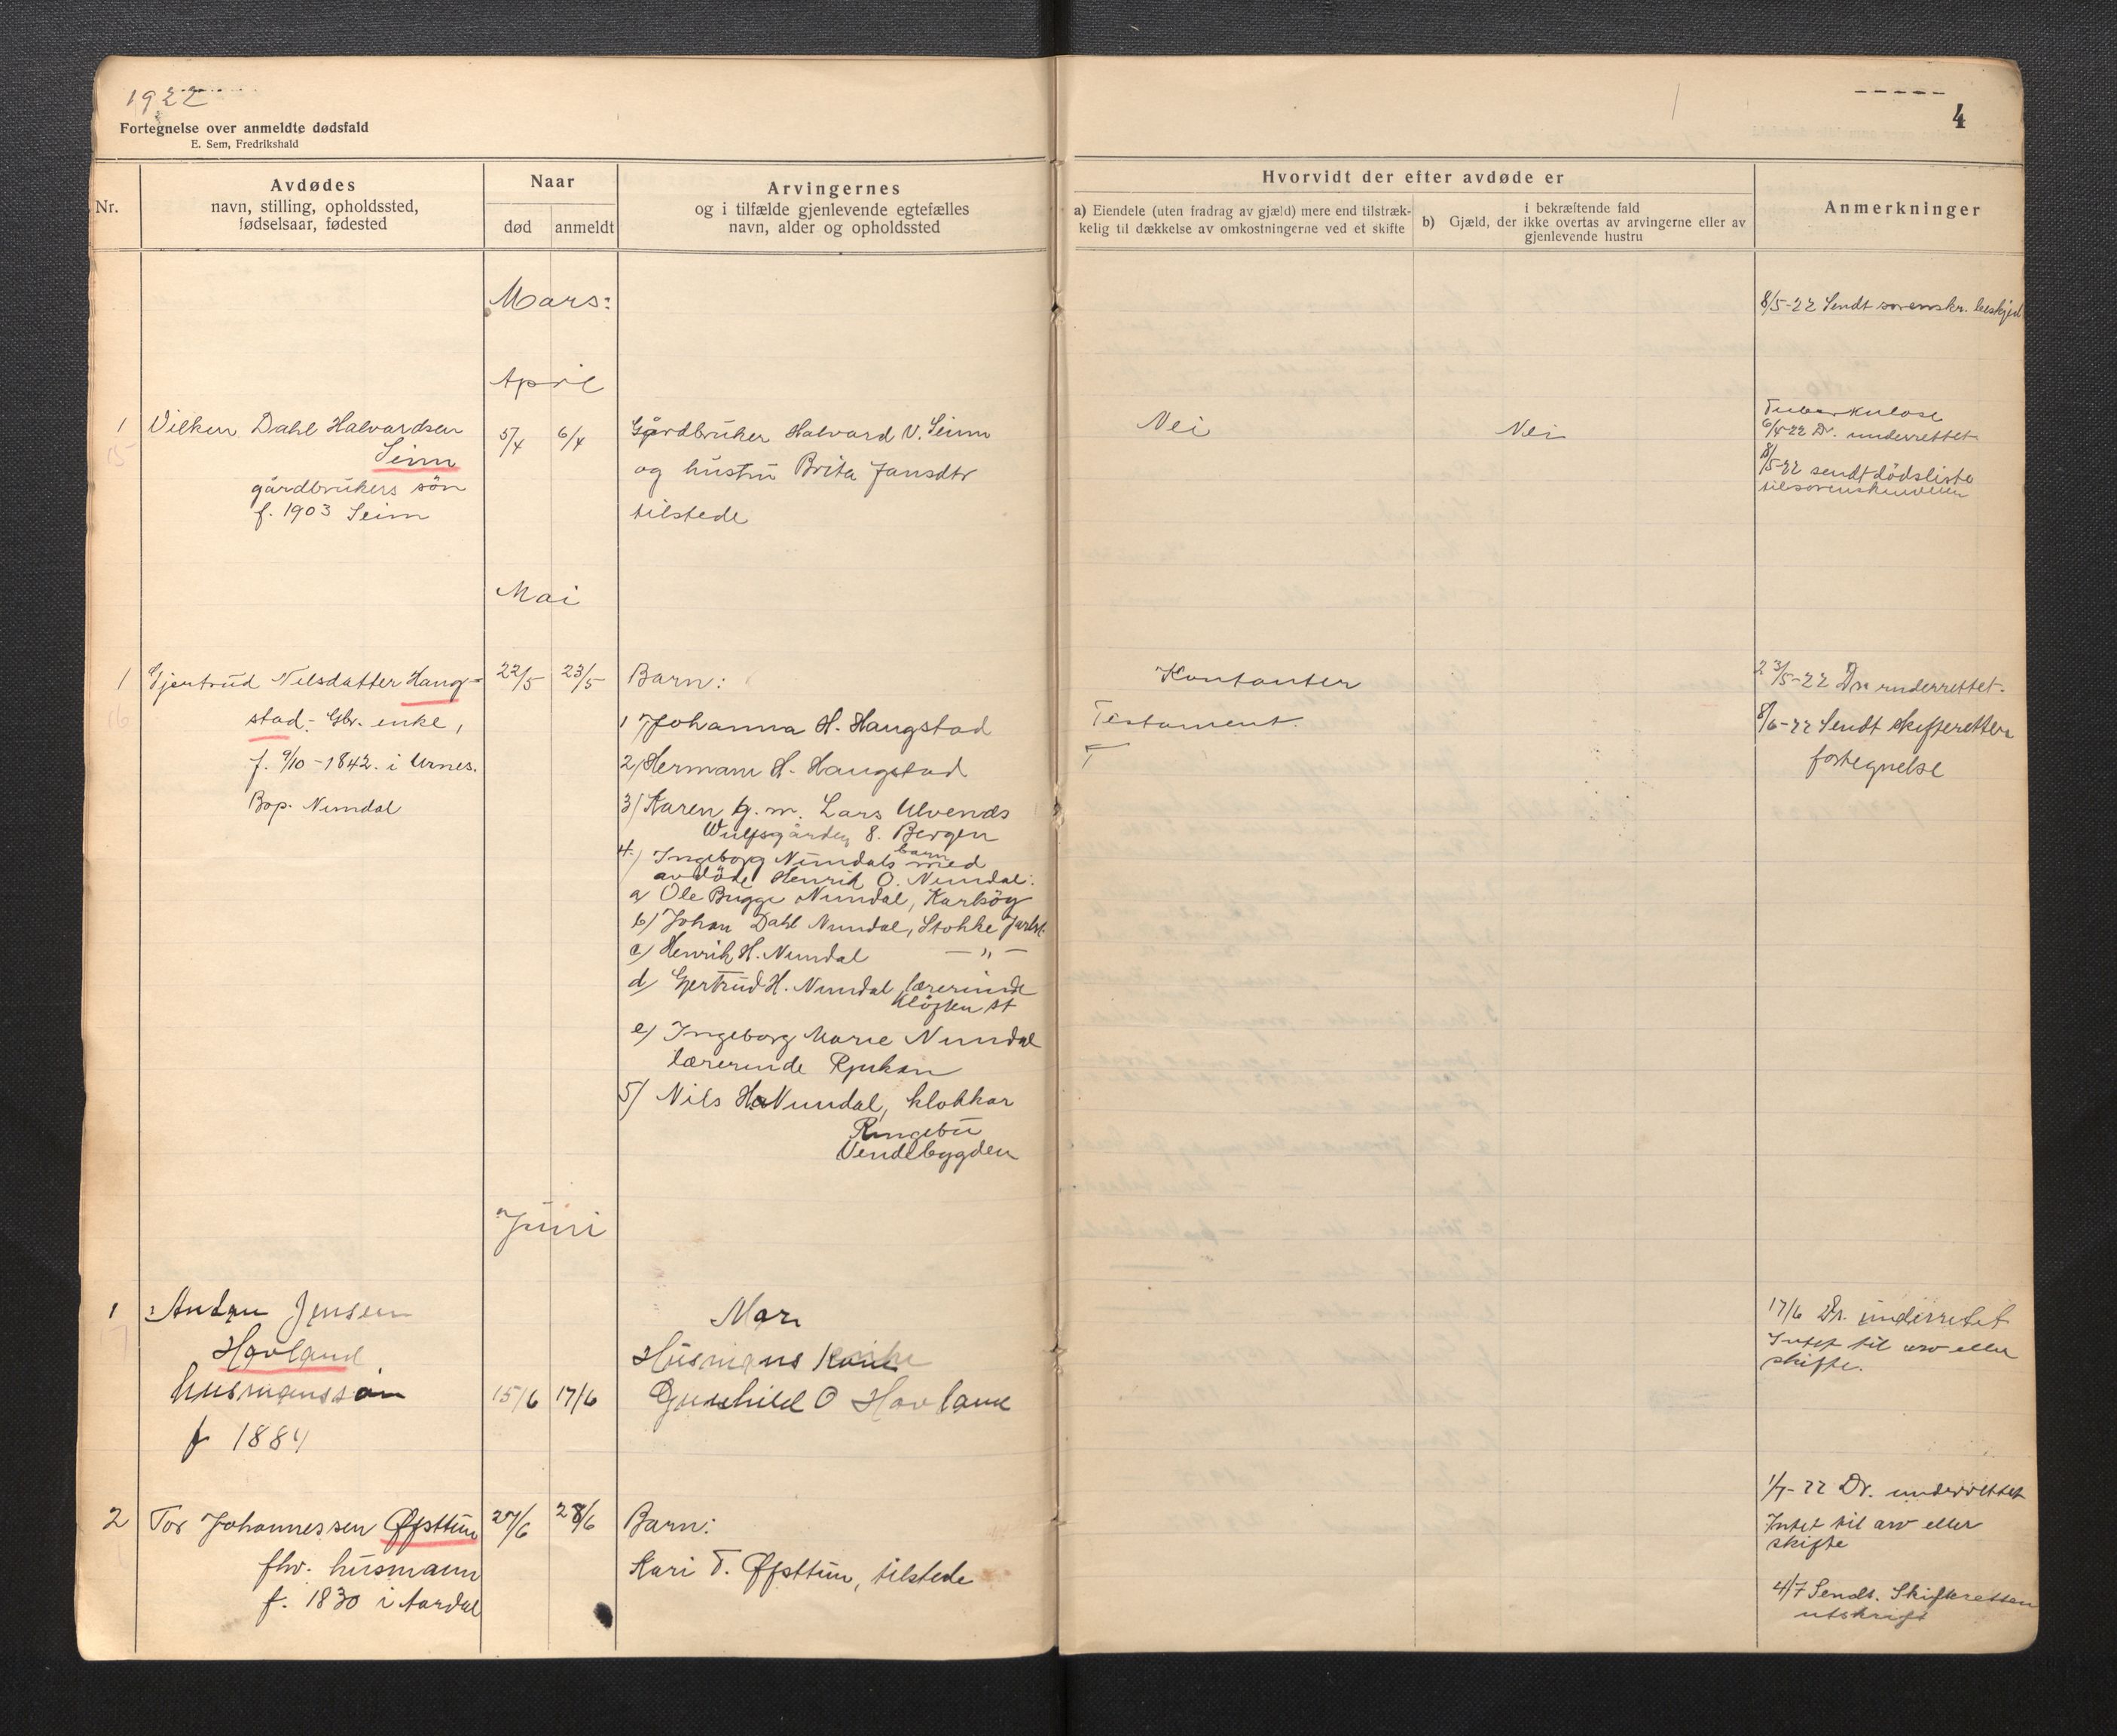 1922
Fortegnelse over anmeldte dødsfald
E. Sem, Fredrikshald
4
Nr.
Avdødes
navn, stilling, opholdssted,
fødselsaar, fødested
Naar
død
anmeldt
Arvingernes
og i tilfælde gjenlevende egtefælles
navn, alder og opholdssted
Hvorvidt der efter avdøde er
a) Eiendele (uten fradrag av gjæld) mere end tilstræk-
kelig til dækkelse av omkostningerne ved et skifte
i bekræftende fald
b) Gjæld, der ikke overtas av arvingerne eller av
gjenlevende hustru
Anmerkninger
Mars:
8/5-22 Sendt sorenskr. beskjed
April
1 Vilken Dahl Halvardsen
Seim
gårdbrukers søn
f. 1903 Seim
15
5/4
6/4
Gårdbruker Halvard V. Seim
og hustru Brita Jansdtr
tilstede
Nei
Nei
Tuberkulose
6/4-22 Dr. underrettet
8/5-22 sendt dödsliste
til sorenskriveren
Mai
1 Gjertrud Nilsdatter Haug-
stad - Gbr. enke,
f. 9/10-1842. i Urnes.
Bop. Nundal
16
22/5
23/5
Barn:
1) Johanna H. Haugstad
2) Hermann H. Haugstad
3) Karen g. m. Lars Ulvends
Wulfsgården 8. Bergen
4) Ingeborg Nundals barn med
avdöde Henrik O. Nundal:
a Ole Bugge Nundal,
b) Johan Dahl Nundal, Stokke Jarlsb.
c) Henrik H. Nundal — „ —
d) Gjertrud H. Nundal, lærerinde
Klöften st
e) Ingeborg Marie Nundal
lærerinde Rjukan
5) Nils H Nundal, klokkar
Ringebu
Venåbygden
Kontanter
Testament.
23/5-22 Dr. underrettet.
8/6-22 Sendt skifteretten
fortegnelse
Juni
1 Jensen
Hovland
husmannssøn
f 1884
17
15/6
17/6
Mor
Husmans
Gunhild O Hovland
17/6 Dr. underrettet
Intet til arv eller
skifte.
2 Tor Johannessen Øfsttun
fhv. husmann
f. 1830 i Aardal
27/6
28/6
Barn:
Kari T. Øfsttun, tilstede
1/7-22 Dr. underrettet
Intet til arv eller
skifte
4/7 Sendt. Skifteretten
utskrift